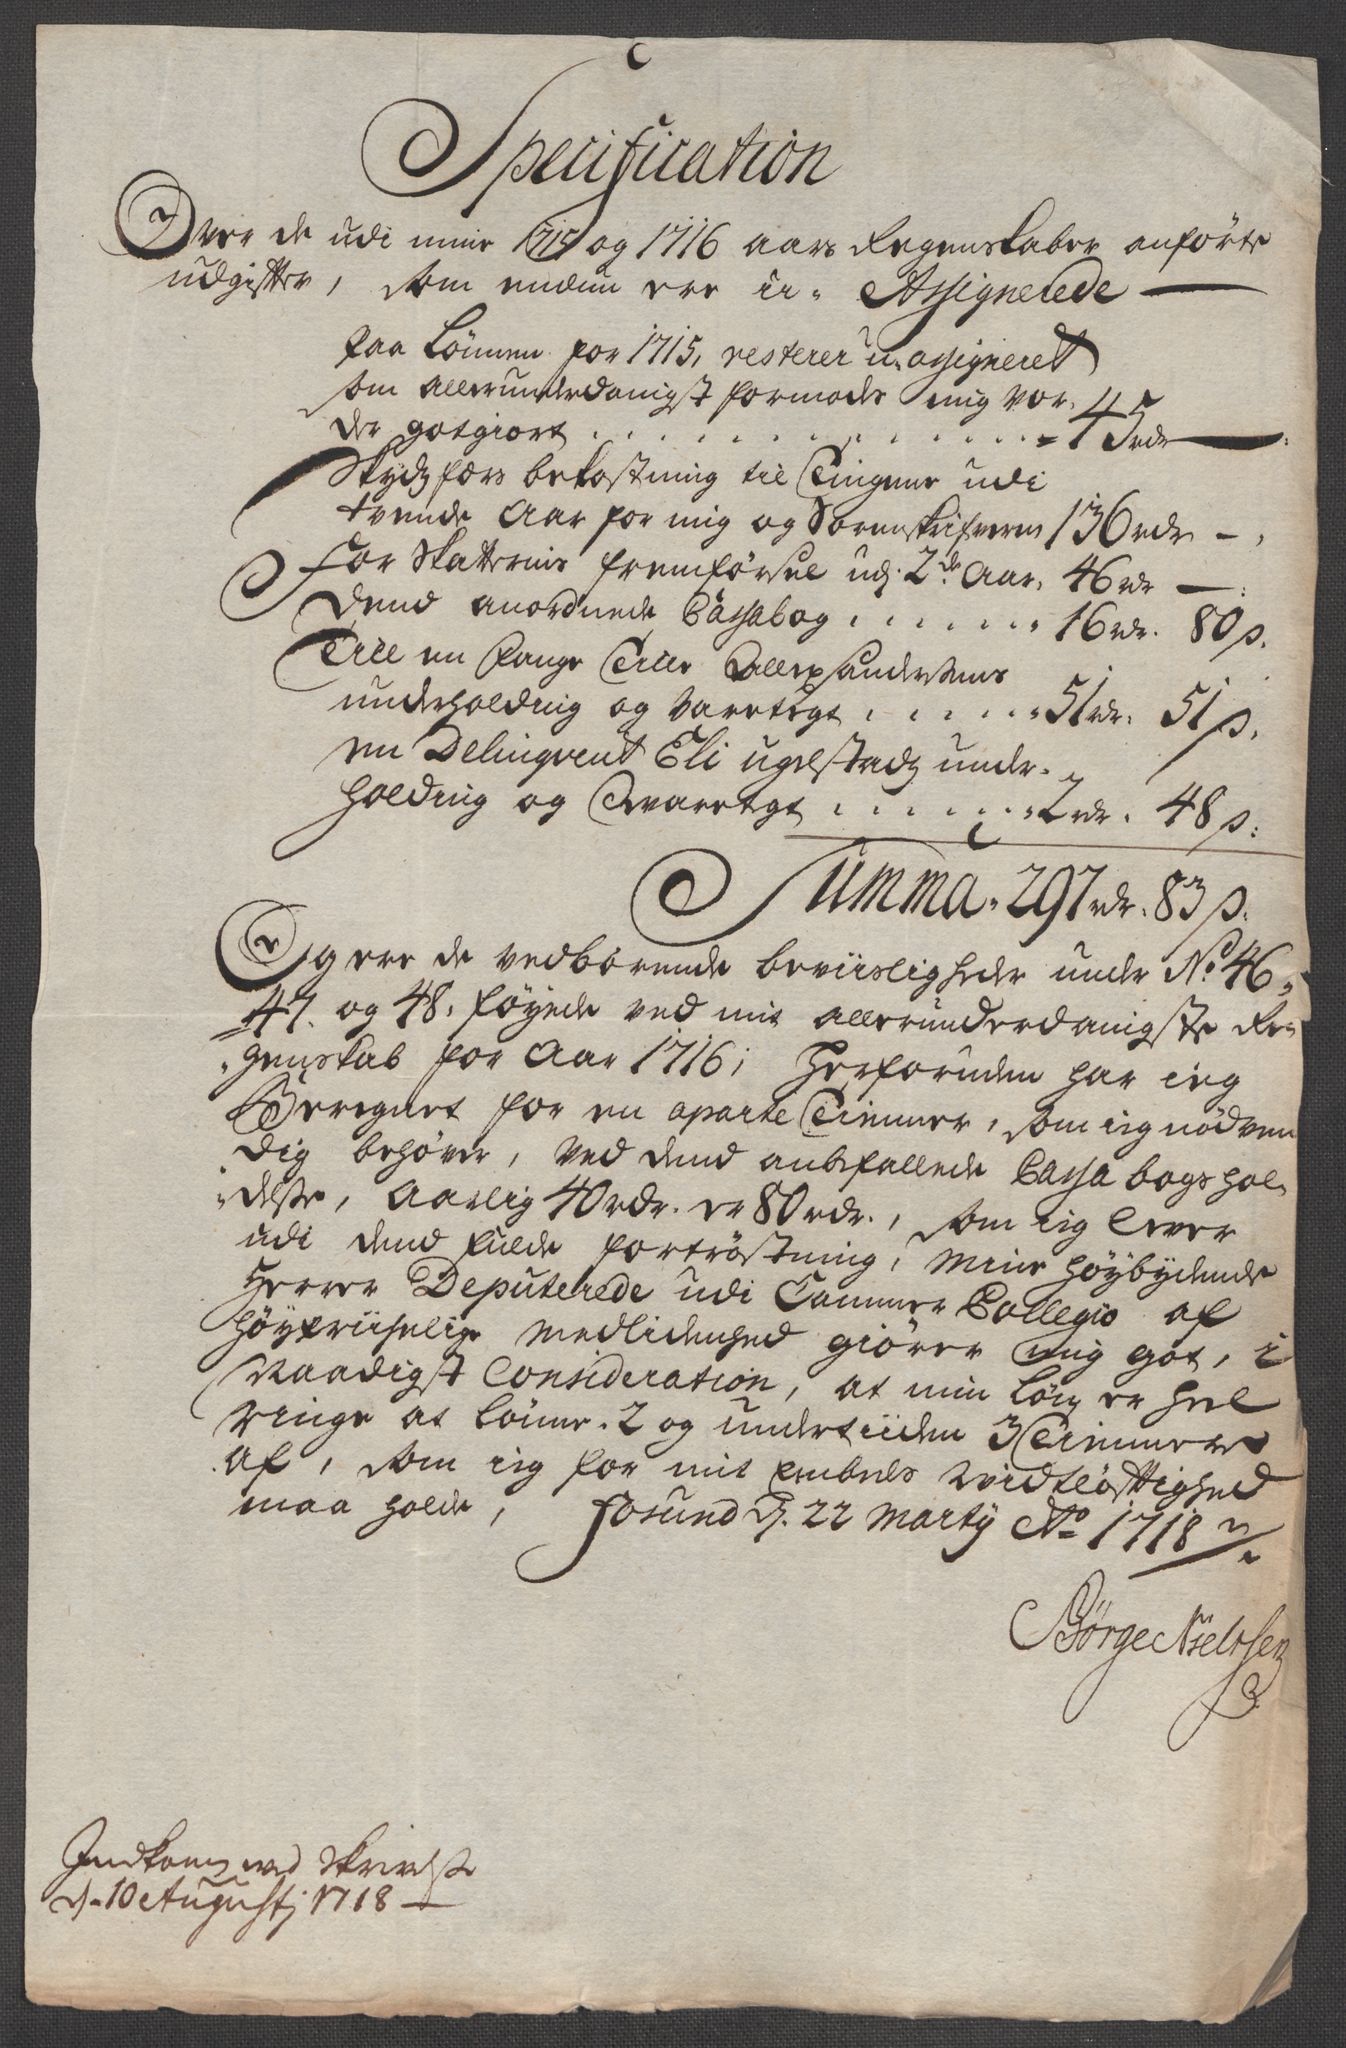 Specification
Over de udi mine 1715 og 1716 aars Regenskaber anförte
udgifter, som endnu ere u- Assignerede
Paa Lönnen for 1715, resterer u-assigneret
som allerunderdanigst formodes mig vor-
der gotgiort . . . . . . . . . . . . . 45 rdr —
Skydzfærs bekostning til Tingene udi
tvende Aar for mig og Sorenskrifveren 136 rdr -
For Skatternis fremförsel udj 2de Aar, 46 rdr —
Dend anordnede Cassabog . . . . . . . 16 rdr. 80 s.
Till en Fange Tille Allexsandersens
underholding og Varetegt . . . . . . 51 rdr. 51 s.
en Delinqvent Eli ugelstadz under-
holding og Tvaretegt . . . . . . 2 rdr. 48 s:
Summa. 297 rdr. 83 s.
Og ere de vedbörende beviisligheder under No 46,
47. og 48. föyede ved mit allerunderdanigste Re-
genskab for Aar 1716; Herforuden har ieg
Beregnet for en aparte Timmer, som ieg nödven
dig behöver, ved dend anbefallede Cassa bogs hol-
delse, Aarlig 40 rdr. er 80 rdr., som ieg lever
udi dend fulde fortröstning, Mine höybydende
Herrer Deputerede udi Cammer Collegio af
höypriiselige Medlidenhed giörer mig got, i
Naadigst Consideration, at min Lön er heel
ringe at lönne. 2 og undertiiden 3 Tiennere
af, som ieg for mit Embeds vidtlöftighed
maa holde, Fosund d. 22 Martij Ao 1718
Börge Nielssen
Indkom med Skrivelse
d. 10 Augustj 1718